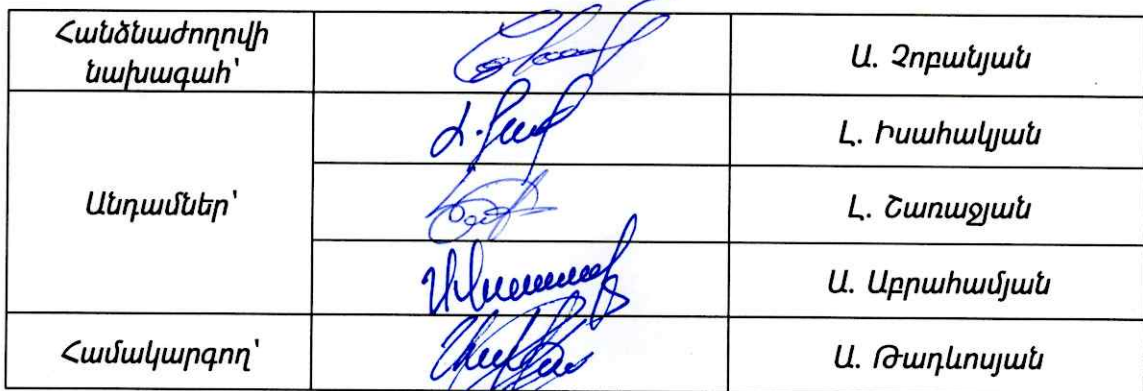 Հանձնաժողովի
նախագահ՝
Ա. Չոբանյան
Լ. Իսահակյան
Անդամներ՝
Լ. Շառաջյան
Ա. Աբրահամյան
Համակարգող՝
Ա. Թադևոսյան